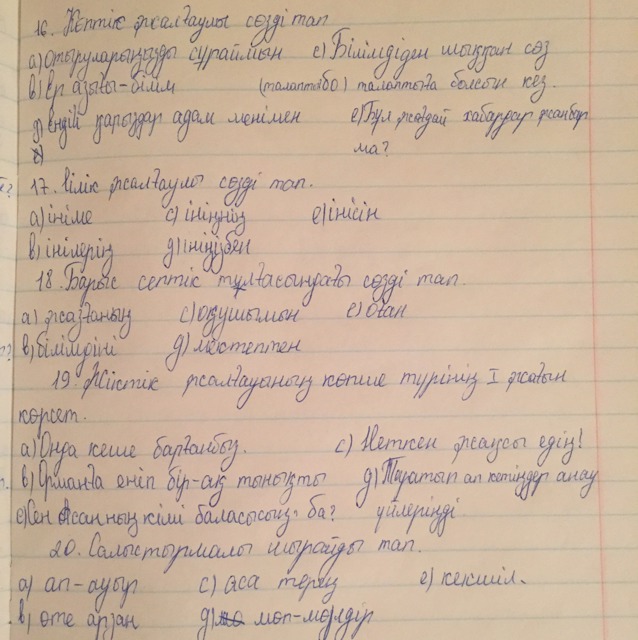 16. Көптік жалғаулы сөзді тап
а) отыруларыңызды сұраймын с) Білімдіден шыққан сөз
в) ер азығы-білім (талаптыбо) талаптыға болсын кез.
д) ендігі қарыздар адам менімен е) Бұл жағдай хабардар жанбар
ма?
17. Ілік жалғаулы сөзді тап.
а) ініме с) інінің е) інісін
в) інілерің д) ініңізбен
18. Барыс септік тұлғасындағы сөзді тап.
а) жазғаның с) оқушымын е) оған
в) білімдіні д) мектептен
19. Жіктік жалғауының көпше түрінің I жағын
көрсет.
а) Онда кеше барғанбыз. с) Неткен жақсы едің!
в) Орманға еніп бір-ақ тынықты д) Тауатып ап кетіңдер анау
е) Сен Асанның кімі баласысың ба? үйлеріңді
20. Салыстырмалы шырайды тап.
а) ап-ауыр с) аса терең е) кекшіл.
в) өте арзан д) мөп-мөлдір